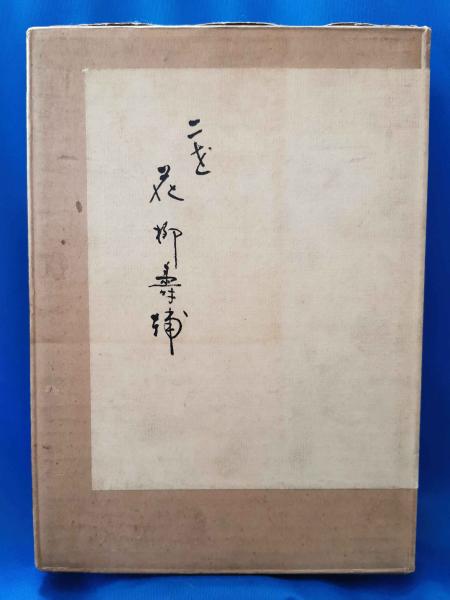 二世
花柳寿輔